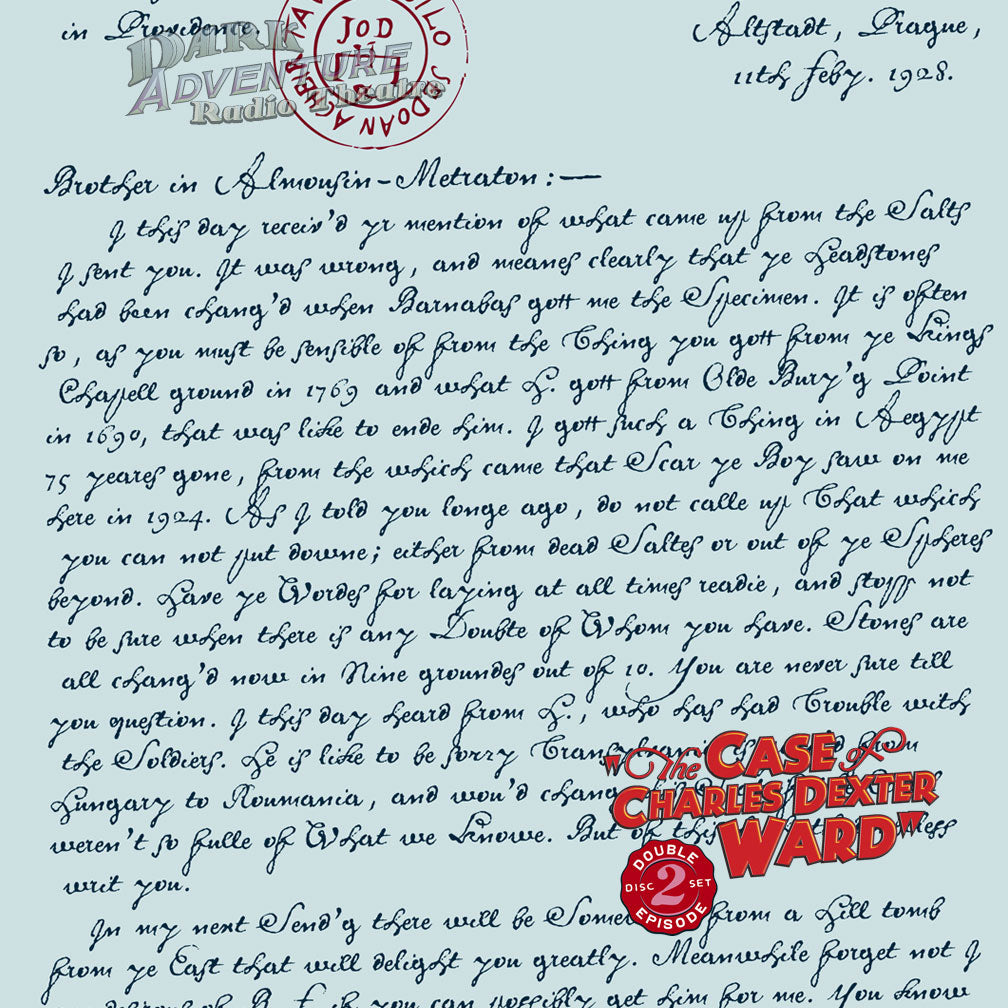 in Providence.
Altstadt, Prague,
11th feby. 1928.
DARK
ADVENTURE
Radio Theatre
JOD
Brother in Almousin-Metraton:—
I this day receiv'd yr mention of what came up from the Salts
I sent you. It was wrong, and meanes clearly that ye Headstones
had been chang'd when Barnabas gott me the Specimen. It is often
so, as you must be sensible of from the Thing you gott from ye Kings
Chapell ground in 1769 and what H. gott from Olde Bury'g Point
in 1690, that was like to ende him. I gott such a Thing in Aegypt
75 yeares gone, from the which came that Scar ye Boy saw on me
here in 1924. As I told you longe ago, do not calle up That which
you can not put downe; either from dead Saltes or out of ye Spheres
beyond. Have ye Wordes for laying at all times readie, and stopp not
to be sure when there is any Doubte of Whom you have. Stones are
all chang'd now in Nine groundes out of 10. You are never sure till
you question. I this day heard from H., who has had Trouble with
the Soldiers. He is like to be sorry from
Hungary to Roumania, and wou'd change
weren't so fulle of What we Knowe. But of this
writ you.
"The CASE of
CHARLES DEXTER
WARD"
DOUBLE
DISC 2 SET
EPISODE
In my next Send'g there will be from a Hill tomb
from ye East that will delight you greatly. Meanwhile forget not I
you can possibly get him for me. You know